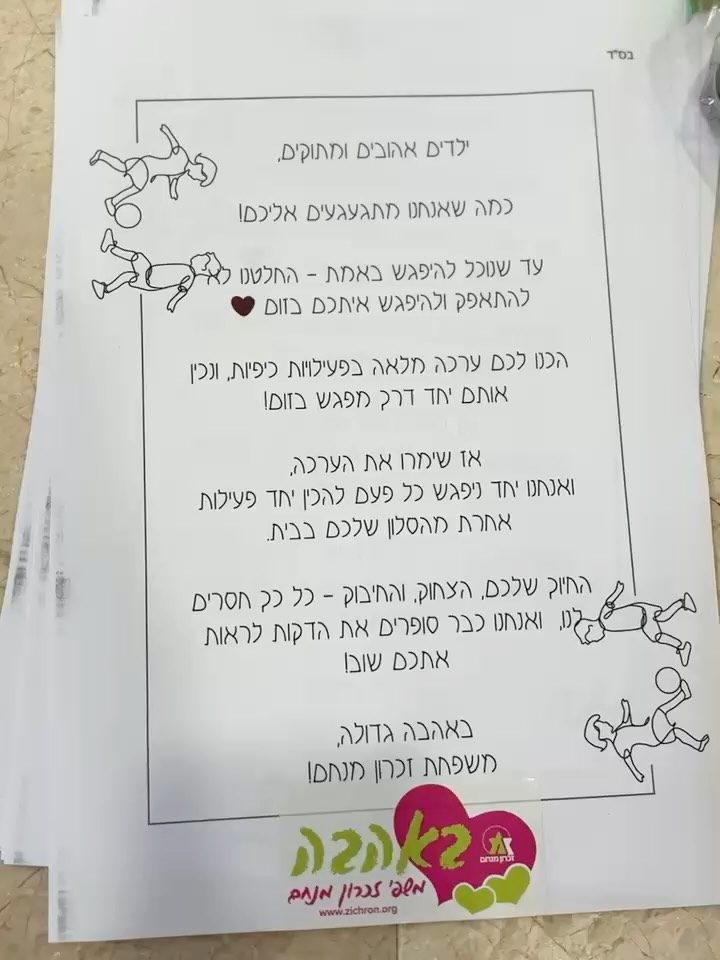 בס"ד
ילדים אהובים ומתוקים,
כמה שאנחנו מתגעגעים אליכם!
עד שנוכל להיפגש באמת - החלטנו לא
להתאפק ולהיפגש איתכם בזום ♥
הכנו לכם ערכה מלאה בפעילויות כיפיות, ונכין
אותם יחד דרך מפגש בזום!
אז שימרו את הערכה,
ואנחנו יחד ניפגש כל פעם להכין יחד פעילות
אחרת מהסלון שלכם בבית.
החיוך שלכם, הצחוק, והחיבוק - כל כך חסרים
לנו, ואנחנו כבר סופרים את הדקות לראות
אתכם שוב!
באהבה גדולה,
משפחת זכרון מנחם!
באהבה
זכרון מנחם
משפ' זכרון מנחם
www.zichron.org